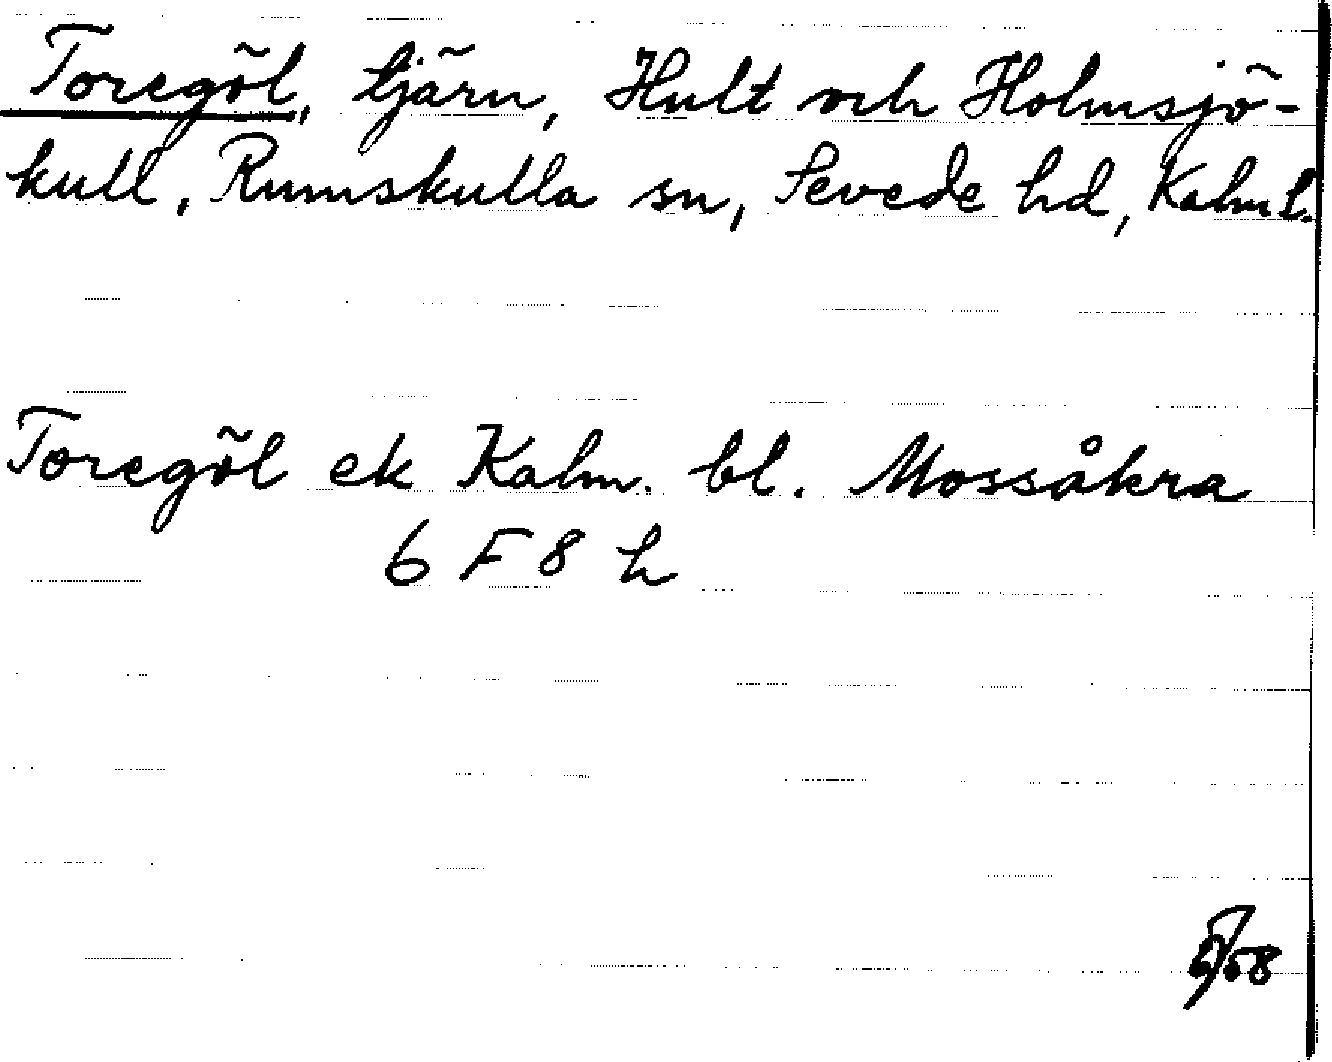 Toregöl, tjärn, Hult och Holmsjö-
kull, Rumskulla sn, Sevede hd, Kalm l.
Toregöl ek Kalm. bl. Mossåkra
6 F 8 h